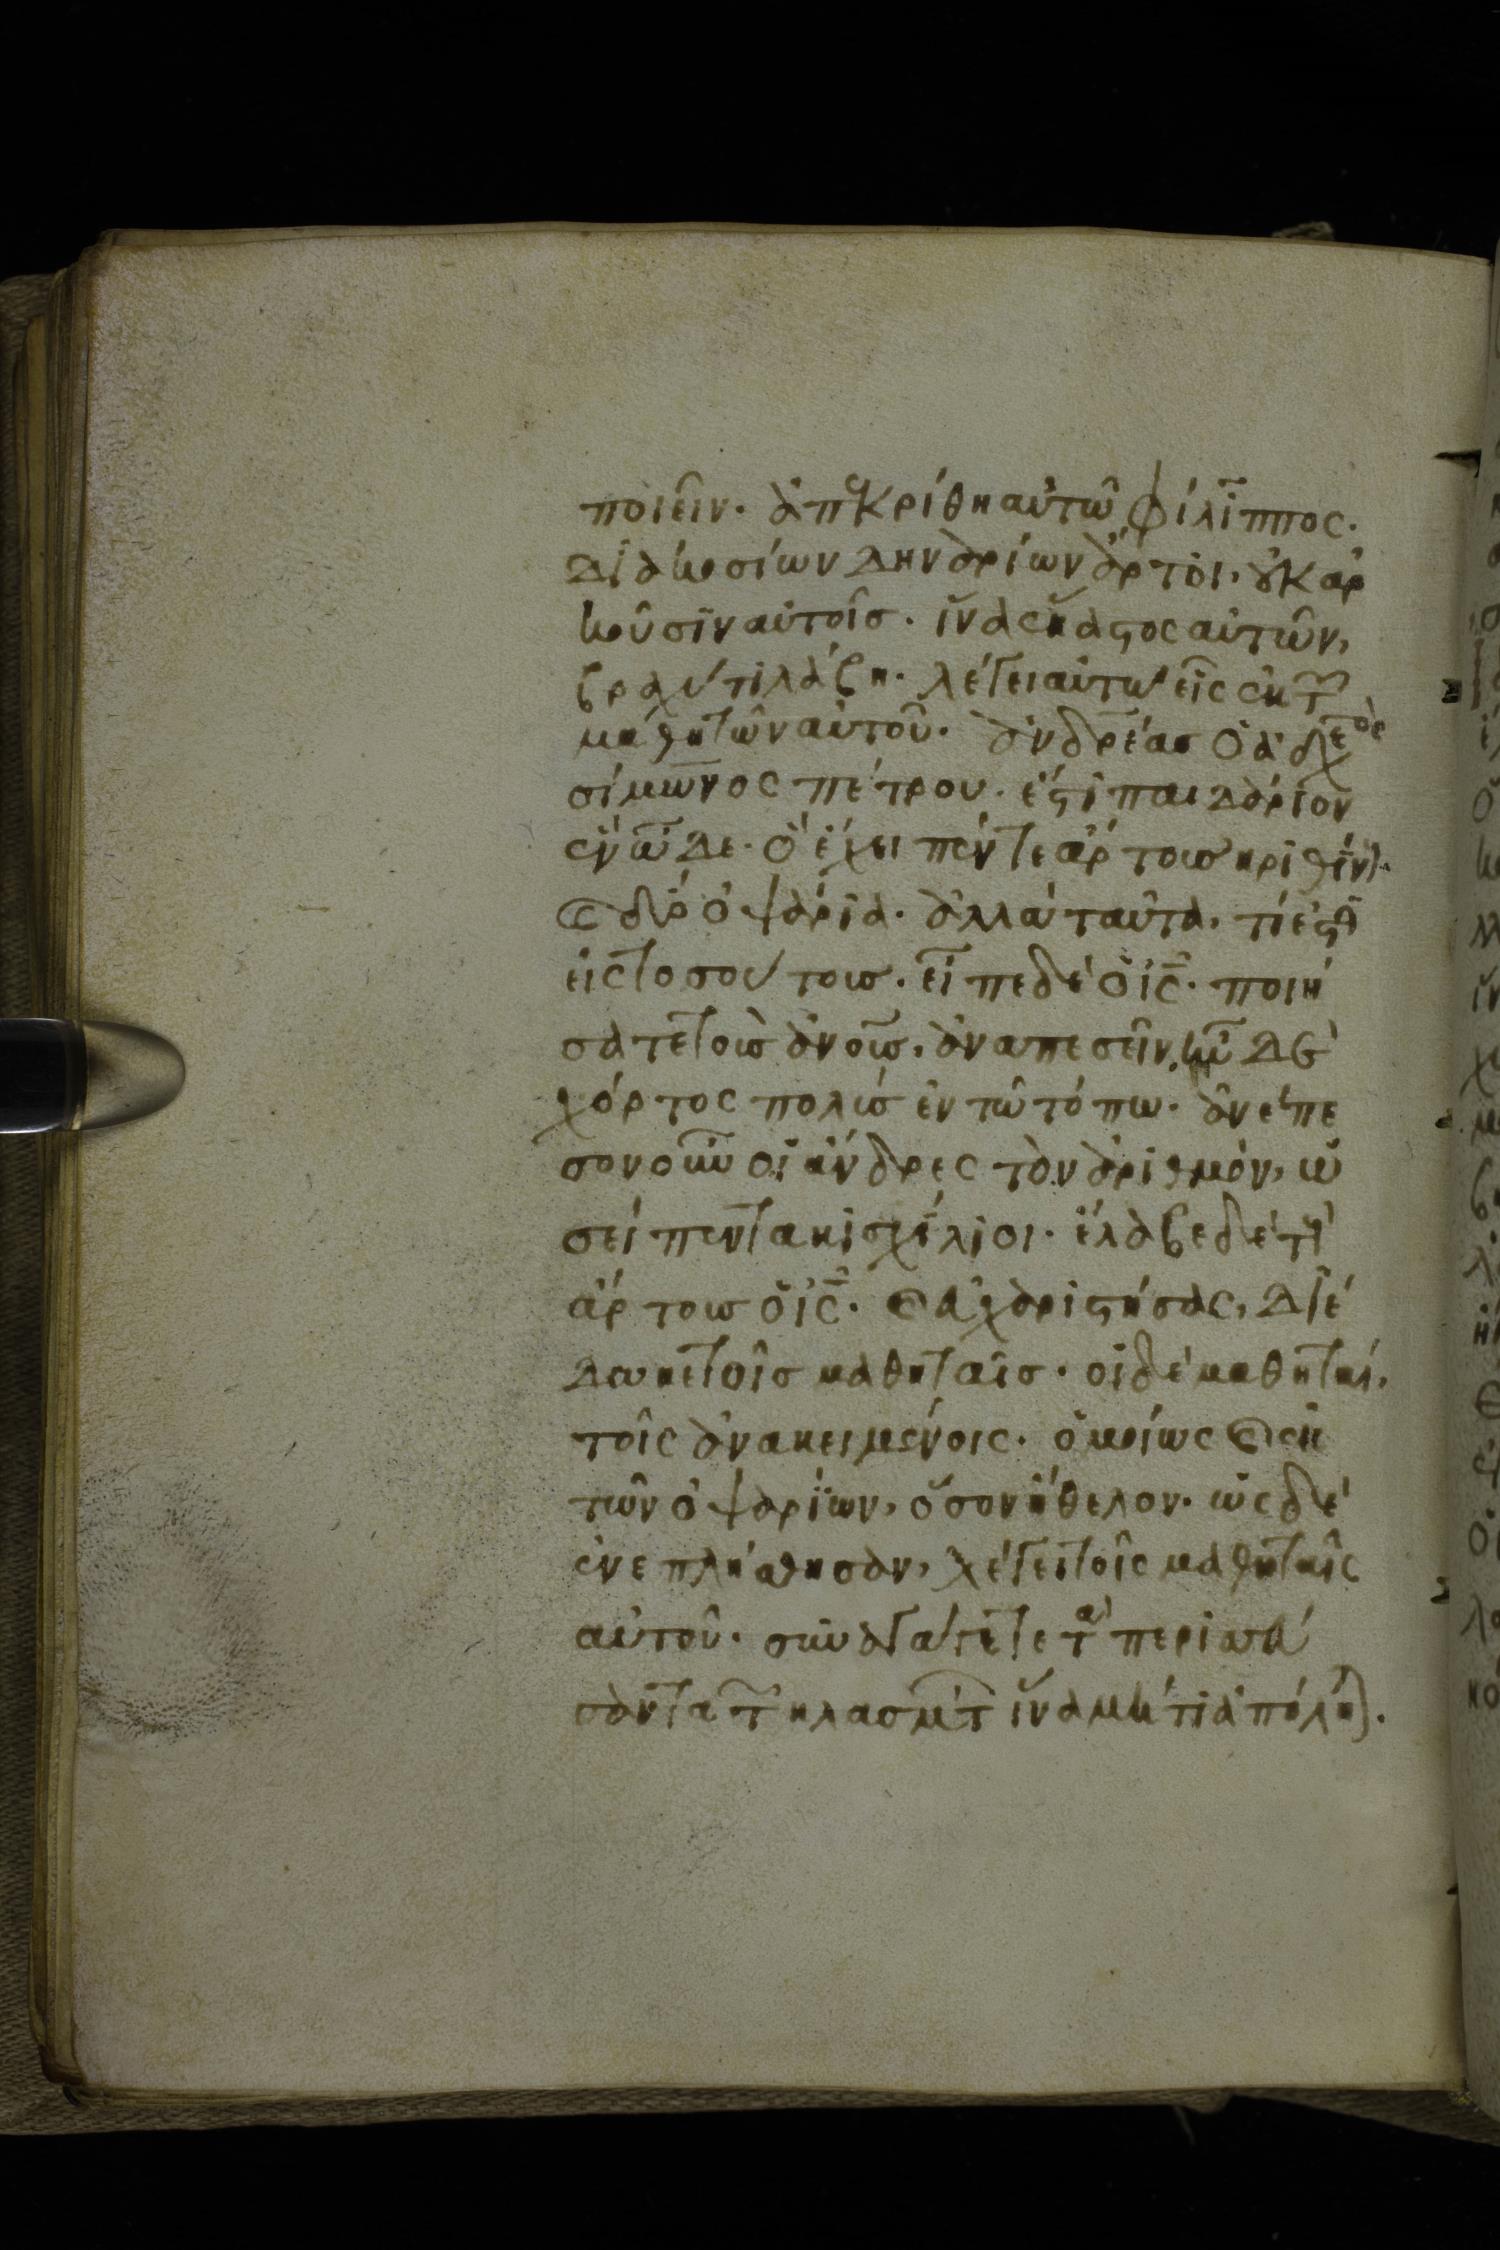 ποιεῖν. ἀπεκρίθη αὐτῶ φίλιππος.
Διακοσίων δηναρίων ἄρτοι, οὐκ ἀρ
κοῦσιν αὐτοῖς. ἵνα ἕκαστος αὐτῶν,
βραχύ τι λάβη. λέγει αὐτῶ εἷς ἐκ τῶν
μαθητῶν αὐτοῦ. ἀνδρέας ὁ ἀδελφὸς
σίμωνος πέτρου. ἔστι παιδάριον
ἓν ὧδε. ὃ ἔχει πέντε ἄρτους κριθίν(ους).
καὶ δύο ὀψάρια. ἀλλὰ ταῦτα, τί ἐστὶ
εἰς τοσούτους. εἶπε δὲ ὁ ι̅ς̅. ποιή
σατε τοὺς ἀνο̅υς̅, ἀναπεσεῖν. ἦν δὲ
χόρτος πολὺς ἐν τῶ τόπω. ἀνέπε
σον οὖν οἱ ἄνδρες τὸν ἀριθμὸν, ὡ
σεὶ πεντακισχίλιοι. ἔλαβε δὲ τοὺς
ἄρτους ὁ ι̅ς̅. καὶ εὐχαριστήσας, διέ
δωκε τοῖς μαθηταῖς. οἱ δὲ μαθηταὶ,
τοῖς ἀνακειμένοις. ὁμοίως καὶ ἐκ
τῶν ὀψαρίων, ὅσον ἤθελον. ὡς δὲ
ἐνεπλήσθησαν, λέγει τοῖς μαθηταῖς
αὐτοῦ. συναγάγετε τὰ περισσεύ
σαντα τῶν κλασμάτ(ων) ἵνα μή τι ἀπόλη(ται).